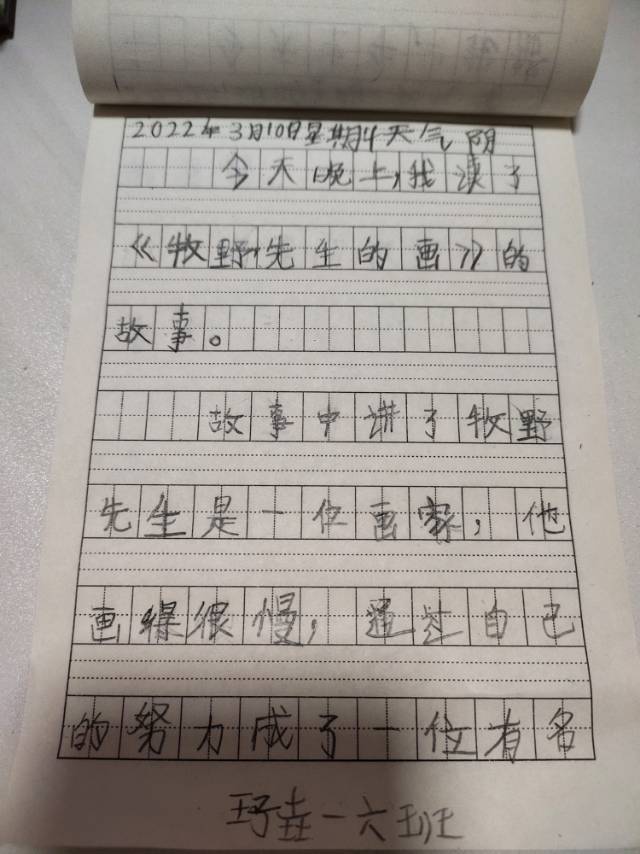 2022年3月10日星期4天气阴
今天晚上,我读了
《牧野先生的画》的
故事。
故事中讲了牧野
先生是一位画家,他
画得很慢,通过自己
的努力成了一位有名
一六班